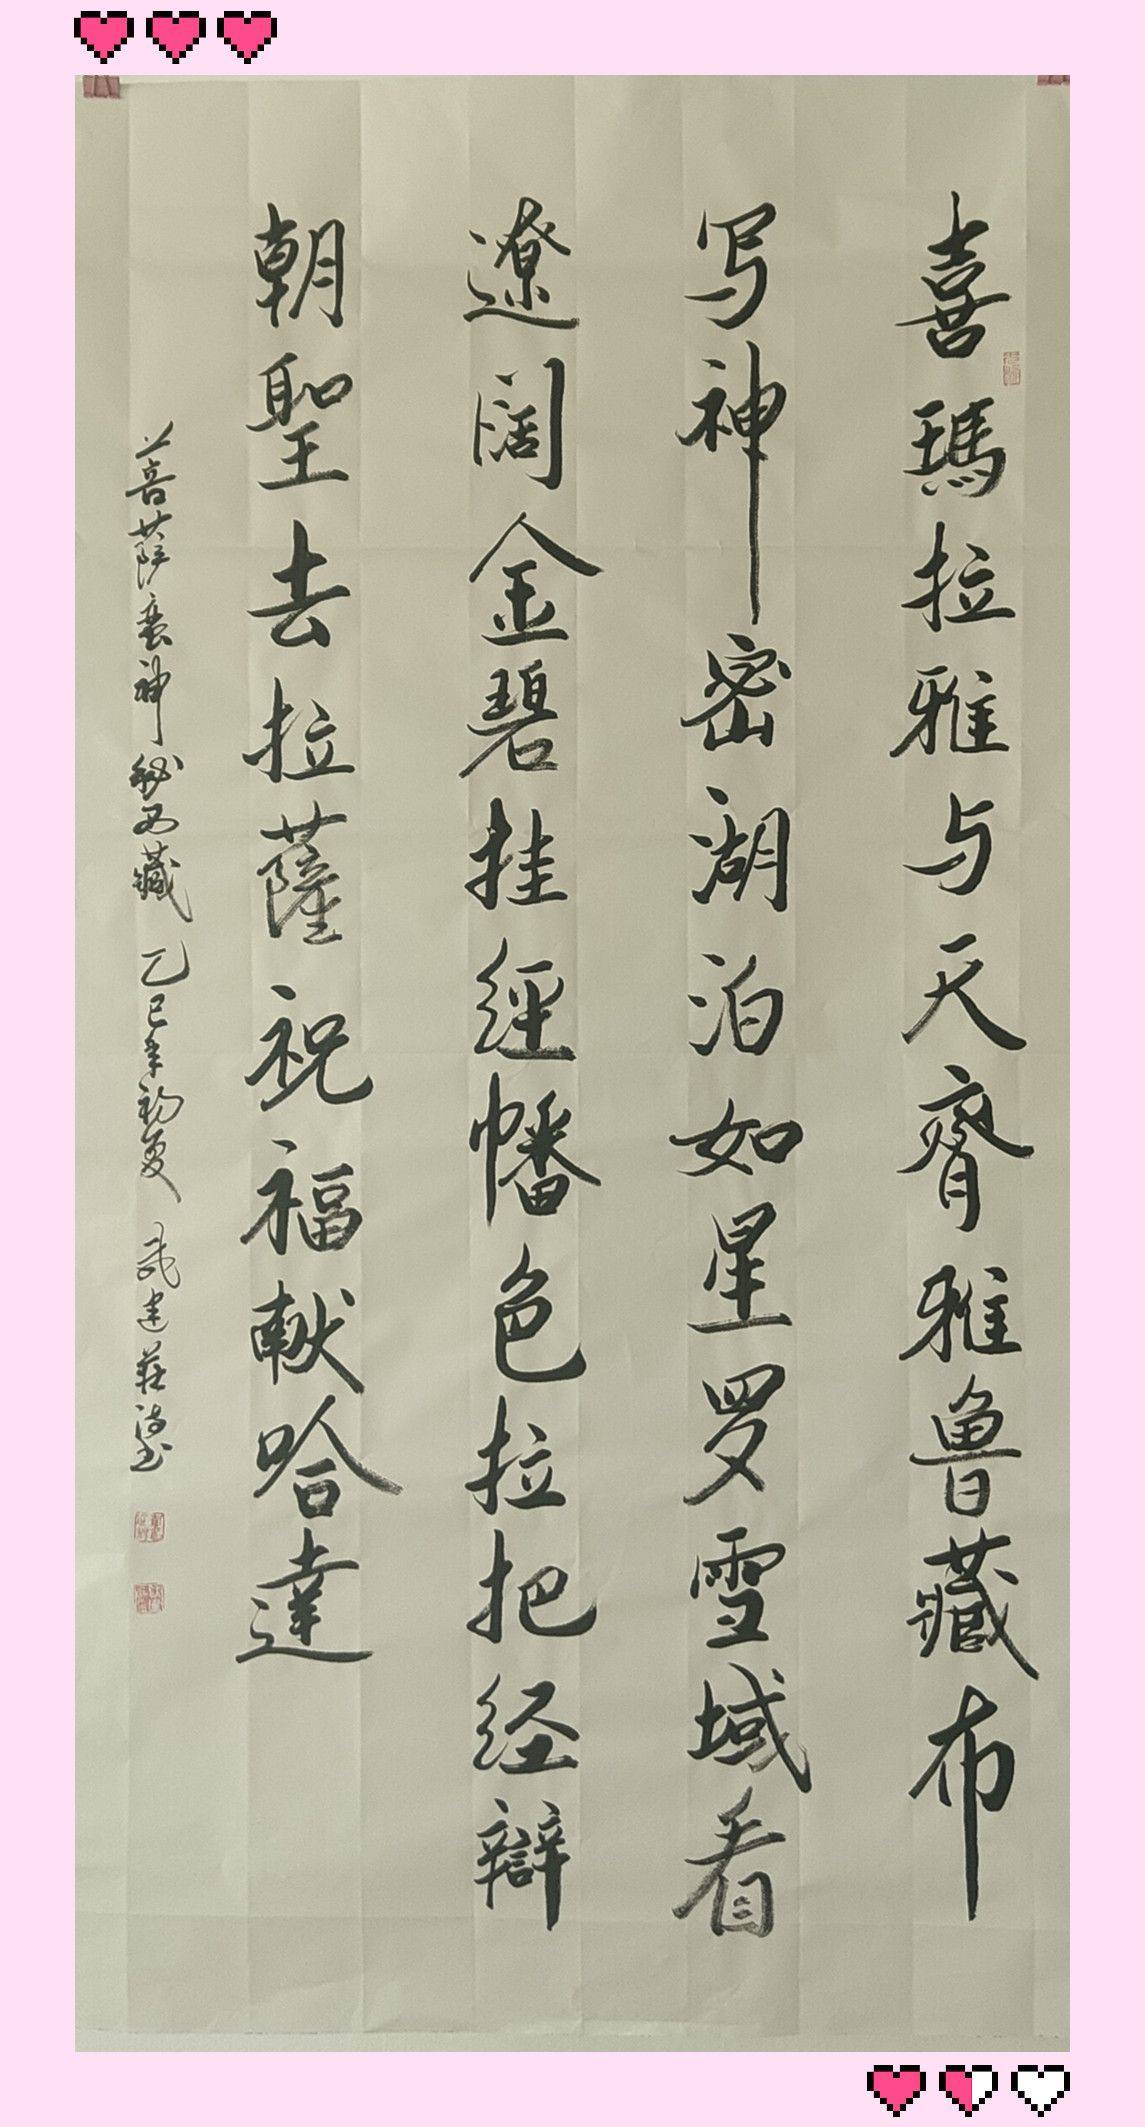 喜瑪拉雅与天齊雅魯藏布
写神密湖泊如星罗雪域看
遼阔金碧挂經幡色拉把经辯
朝聖去拉薩祝福献哈達
菩薩蛮神秘西藏 乙巳年初夏 武建莊诗书